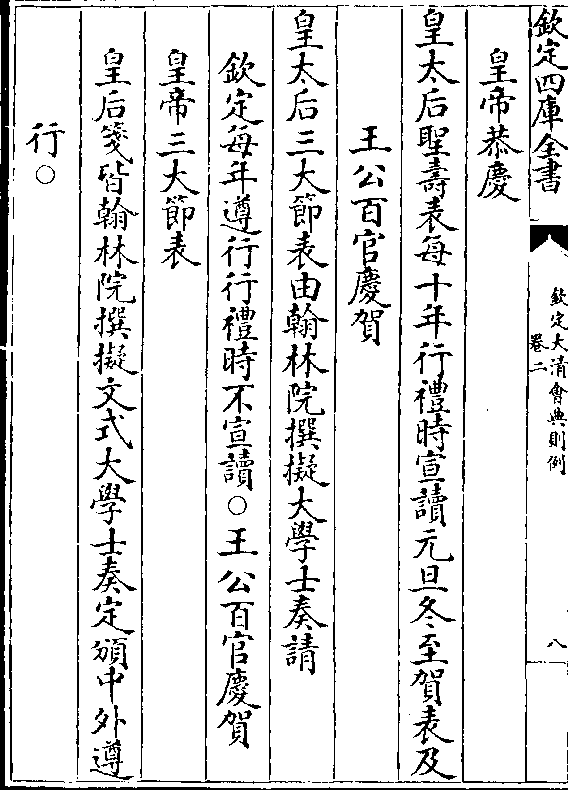 欽定四庫全書
欽定大清會典則例
卷二
八
皇帝恭慶
皇太后聖壽表每十年行禮時宣讀元旦冬至賀表及
王公百官慶賀
皇太后三大節表由翰林院撰擬大學士奏請
欽定每年遵行行禮時不宣讀○王公百官慶賀
皇帝三大節表
皇后箋皆翰林院撰擬文式大學士奏定頒中外遵
行○